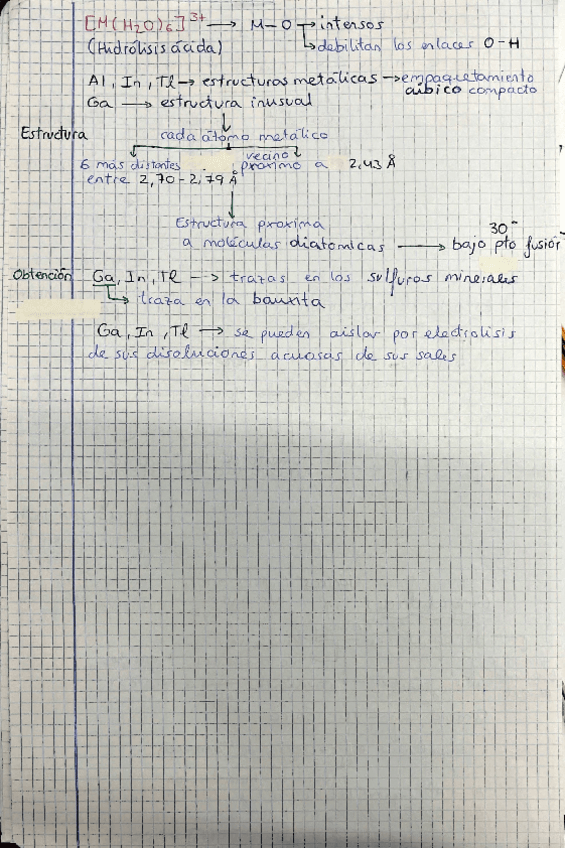 [M(H2O)6]3+ → M-O → intensos
(Hidrólisis ácida) ↳ debilitan los enlaces O-H
Al, In, Tl → estructuras metálicas → empaquetamiento
cúbico compacto
Ga → estructura inusual
Estructura
cada átomo metálico
6 más distantes
entre 2,70-2,79 Å
vecino
próximo a 2,43 Å
Estructura proxima
a moléculas diatomicas → bajo pto fusión
30°
Obtención Ga, In, Tl → trazas en los sulfuros minerales
↳ traza en la bauxita
Ga, In, Tl → se pueden aislar por electrolisis
de sus disoluciones acuosas de sus sales